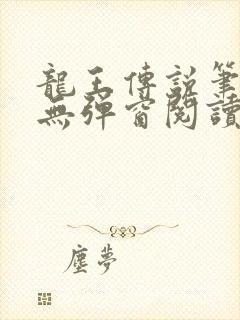 龍王傳說筆
無彈窗閱讀
塵夢